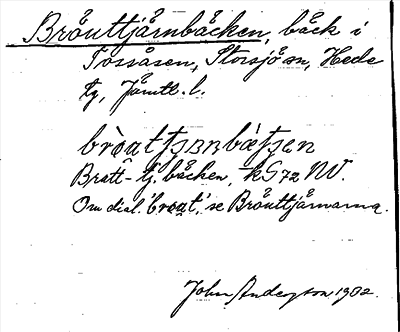 Bråuttjärnbäcken, bäck i
Tossåsen, Storsjö sn, Hede
tg, Jämtl. l.
Bratt-tj. bäcken, kS 72 NV.
Om dial. se Bråuttjärnarna.
John Anderson 1932